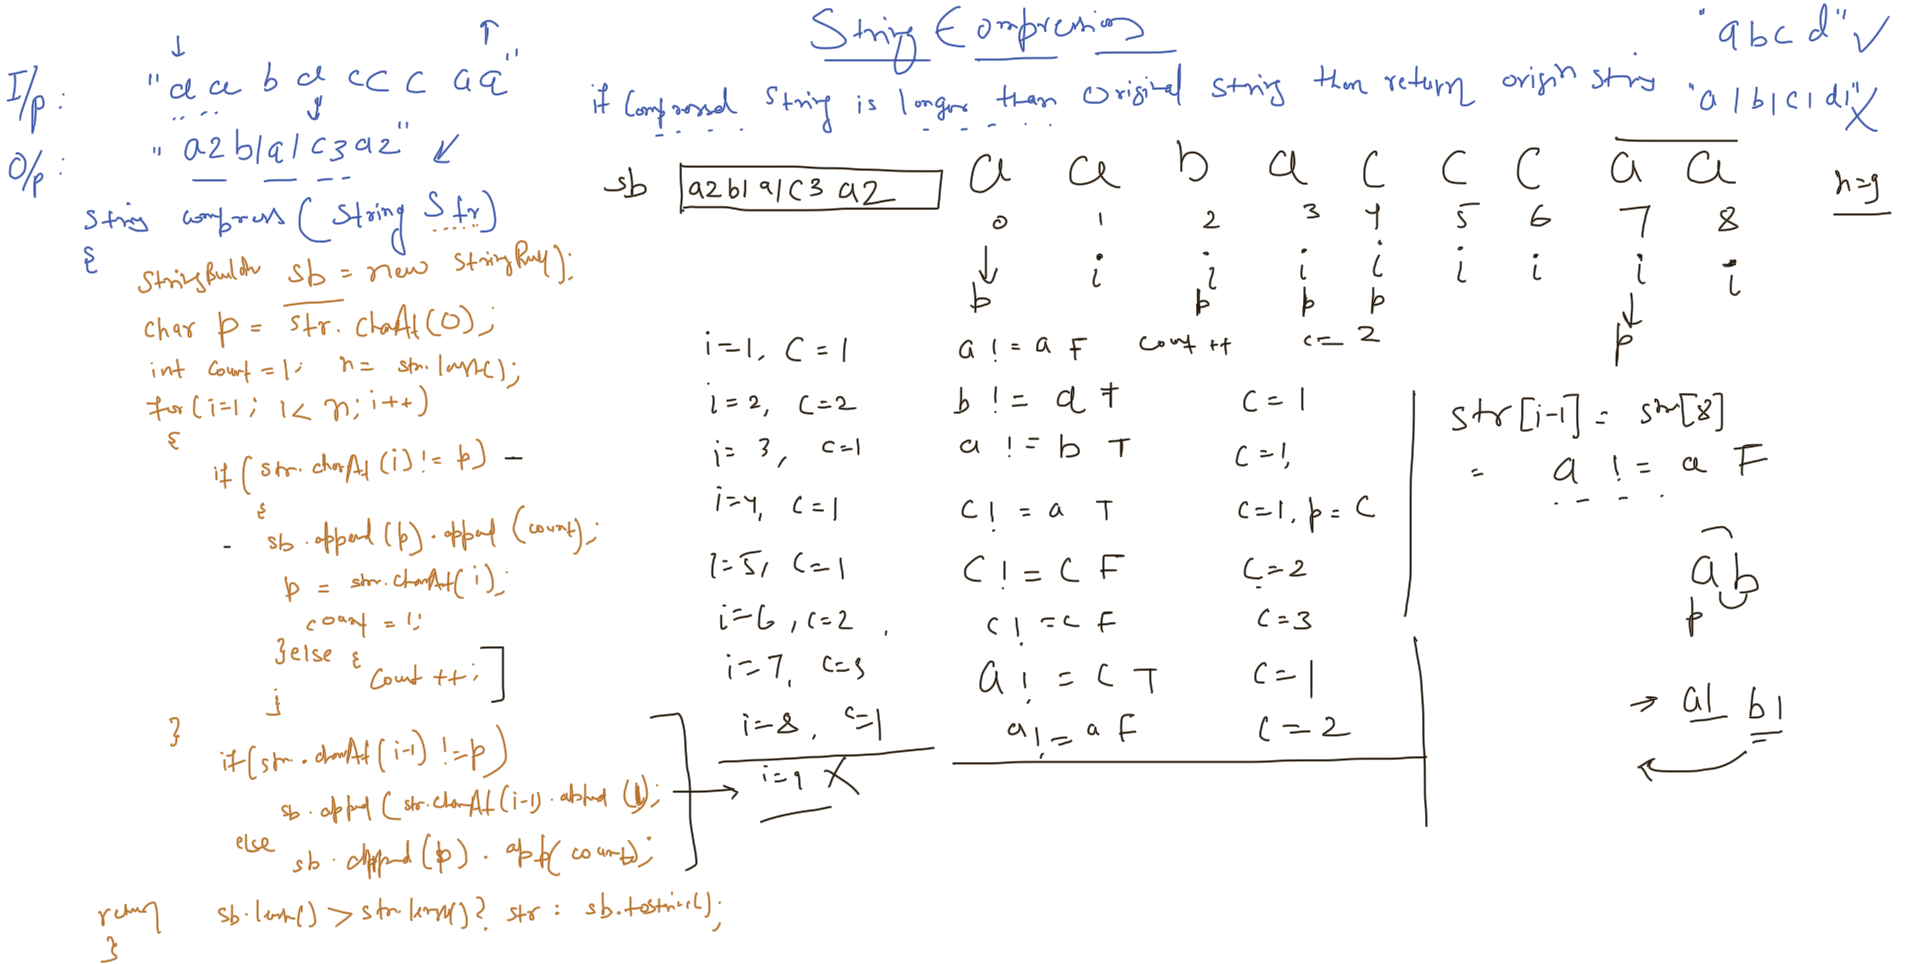 String Compression
"abcd" ✓
I/p: "aabacccaa"
if Compressed String is longer than Original string then return origin string
"a1b1c1d1" X
O/p: "a2b1a1c3a2" ✓
sb a2b1a1c3a2
a a b a c c c a a
n=9
0 1 2 3 4 5 6 7 8
i i i i i i i i
p p p p p
String compress(String Str)
{
StringBuilder sb = new
char p = str.charAt(0);
int count = 1; n = str.length();
for(i=1; i<n; i++)
{
if(str.charAt(i) != p)
{
sb.append(p).append(count);
p = str.charAt(i);
count = 1;
}else {
count++;
}
}
if(str.charAt(i-1) != p)
sb.append(str.charAt(i-1).append(1);
else
sb.append(p).app(count);
return sb.length() > str.length()? str : sb.toString();
}
i=1, C=1 a != a F count++ c=2
i=2, C=2 b != a T C=1
i=3, C=1 a != b T C=1,
i=4, C=1 C != a T C=1, p=C
i=5, C=1 C != C F C=2
i=6, C=2, C != C F C=3
i=7, C=3 a != C T C=1
i=8, C=1 a != a F C=2
i=9 X
str[i-1] = str[8]
= a != a F
ab
p
→ a1 b1